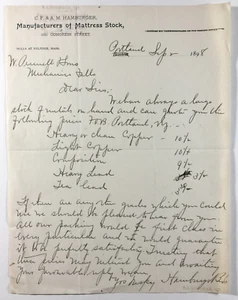 C. P. & A. M. HAMBURGER,
Manufacturers of Mattress Stock,
CONGRESS STREET.
Portland Sep 2 1898
W. Bennett & Sons
Mechanic Falls
Dear Sirs,
We have always a large
stock of metals on hand and can quote you the
following prices FOB Portland, viz –
Heavy or chain Copper –
Light Copper
Composition
Heavy Lead
Tea Lead
If there are any other goods which you could
use we should be pleased to hear from you
All our packing would be first class in
every particular and we would guarantee
it to be perfectly satisfactory. Trusting that
these prices may interest you and awaiting
your favorable reply remain